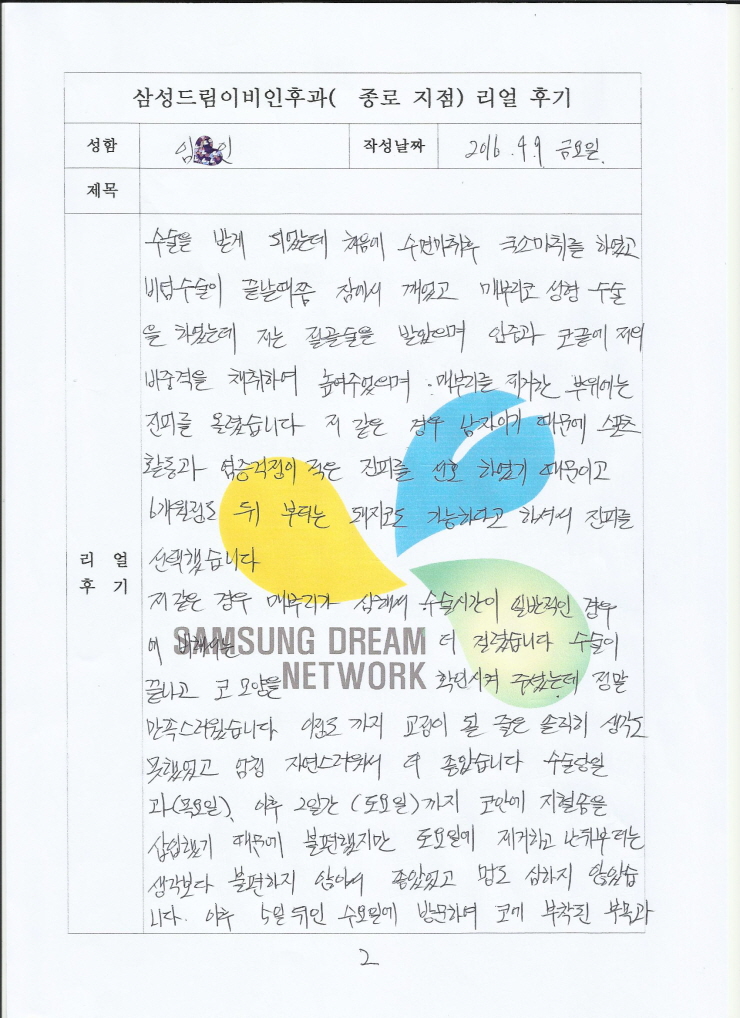 삼성드림이비인후과( 종로 지점) 리얼 후기
성함 임 인 작성날짜 2016. 4. 9 금요일.
제목
리 얼
후 기
수술을 받게 되었는데 처음에 수면마취후 국소마취를 하였고
비염수술이 끝날때쯤 잠에서 깨었고 매부리코 성형 수술
을 하였는데 저는 절골술을 받았으며 안쪽과 코끝에 저의
비중격을 채취하여 높여주었으며 매부리를 제거한 부위에는
진피를 올렸습니다 저 같은 경우 남자이기 때문에 스포츠
활동과 염증걱정이 적은 진피를 선호 하였기 때문이고
6개월정도 뒤 부터는 돼지코도 가능하다고 하셔서 진피를
선택했습니다
저 같은 경우 매부리가 심해서 수술시간이 일반적인 경우
에 비해서는 더 걸렸습니다 수술이
끝나고 코 모양을 확인시켜 주셨는데 정말
만족스러웠습니다 이정도 까지 교정이 될 줄은 솔직히 생각도
못했었고 엄청 자연스러워서 더 좋았습니다 수술당일
과(목요일), 이후 2일간 (토요일)까지 코안에 지혈솜을
삽입했기 때문에 불편했지만 토요일에 제거하고 난뒤부터는
생각보다 불편하지 않아서 좋았었고 멍도 심하지 않았습
니다. 이후 5일 뒤인 수요일에 방문하여 코에 부착된 부목과
SAMSUNG DREAM
NETWORK
2